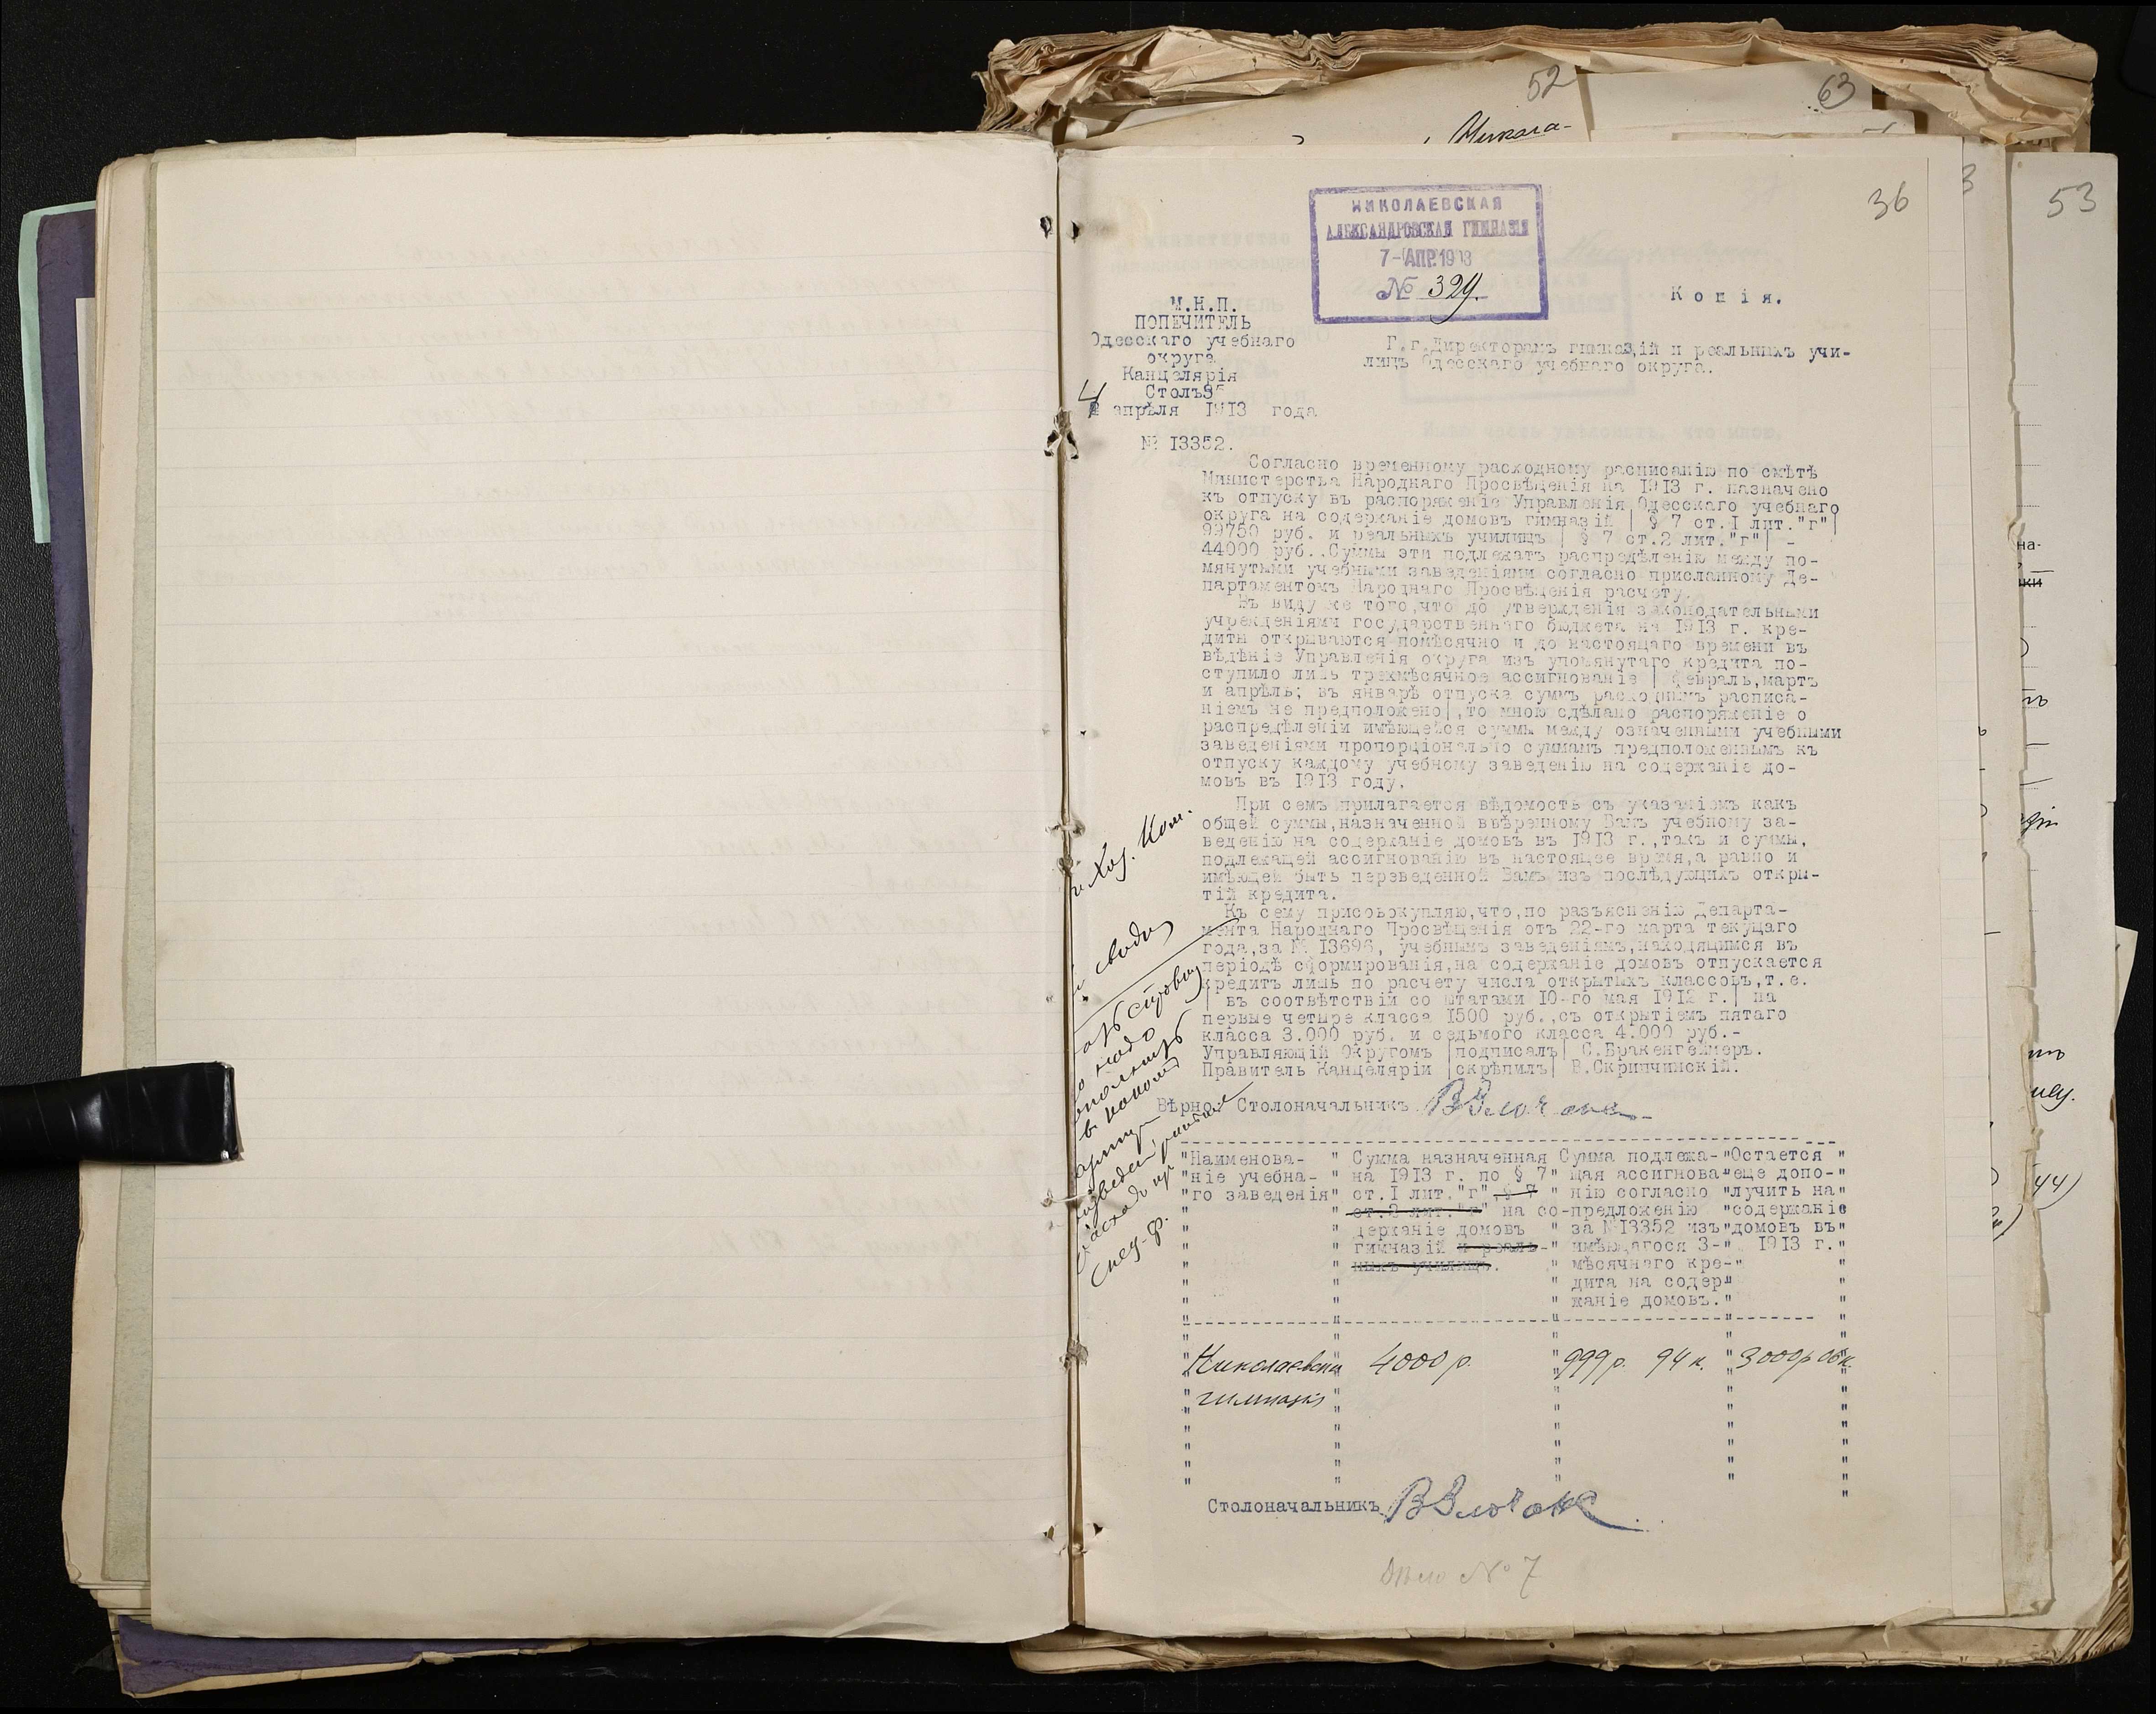 52
63
Никола-
36
53
НИКОЛАЕВСКАЯ
АЛЕКСАНДРОВСКАЯ ГИМНАЗІЯ
7-АПР.1913
№ 329.
Копія.
М.Н.П.
ПОПЕЧИТЕЛЬ
Одесскаго учебнаго
округа
Канцелярія
Столъ
4 апрѣля 1913 года
№ 13352.
Г.г.Директорамъ гимназій и реальныхъ учи-
лищъ Одесскаго учебнаго округа.
Согласно временному расходному расписанію по смѣтѣ
Министерства Народнаго Просвѣщенія на 1913 г. назначено
къ отпуску въ распоряженіе Управленія Одесскаго учебнаго
округа на содержаніе домовъ гимназій | § 7 ст.I лит."г"|
99750 руб. и реальныхъ училищъ | § 7 ст.2 лит."г"| -
44000 руб..Суммы эти подлежатъ распредѣленію между по-
мянутыми учебными заведеніями согласно присланному Де-
партаментомъ Народнаго Просвѣщенія расчету.
Въ виду же того,что до утвержденія законодательными
учрежденіями государственнаго бюджета на 1913 г. кре-
диты открываются помѣсячно и до настоящаго времени въ
вѣдѣніе Управленія округа изъ упомянутаго кредита по-
ступило лишь трехмѣсячное ассигнованіе | февраль,мартъ
и апрѣль; въ январѣ отпуска суммъ расходнымъ расписа-
ніемъ не предположено|,то мною сдѣлано распоряженіе о
распредѣленіи имѣющейся суммы между означенными учебными
заведеніями пропорціонально суммамъ предположеннымъ къ
отпуску каждому учебному заведенію на содержаніе до-
мовъ въ 1913 году.
При семъ прилагается вѣдомость съ указаніемъ какъ
общей суммы,назначенной ввѣренному Вамъ учебному за-
веденію на содержаніе домовъ въ 1913 г.,такъ и суммы,
подлежащей ассигнованію въ настоящее время,а равно и
имѣющей быть переведенной Вамъ изъ послѣдующихъ откры-
тій кредита.
Къ сему присовокупляю,что,по разъясненію Департа-
мента Народнаго Просвѣщенія отъ 22-го марта текущаго
года,за № 13696, учебнымъ заведеніямъ,находящимся въ
періодѣ сформированія,на содержаніе домовъ отпускается
кредитъ лишь по расчету числа открытыхъ классовъ,т.е.
| въ соотвѣтствіи со штатами 10-го мая 1912 г.| на
первые четыре класса 1500 руб.,съ открытіемъ пятаго
класса 3.000 руб. и седьмого класса 4.000 руб.-
Управляющій Округомъ |подписалъ| С.Бракенгеймеръ.
Правитель Канцеляріи |скрѣпилъ| В.Скрипчинскій.
Вѣрно: Столоначальникъ
Хоз. Ком.
надо
в
расход
спец-ф.
"Наименова- " Сумма назначенная Сумма подлежа-"Остается "
"ніе учебна- " на 1913 г. по § 7" щая ассигнова"еще допо-"
"го заведенія" ст.I лит."г" § 7 " нію согласно "лучить на"
" " ст.2 лит."г" на со-предложенію "содержаніе
" " держаніе домовъ " за №13352 изъ"домовъ въ"
" " гимназій и реаль-" имѣющагося 3-" 1913 г."
" " ныхъ училищъ. " мѣсячнаго кре-" "
" " " дита на содер" "
" " " жаніе домовъ." "
Николаевская 4000 р. 999 р. 94 к. 3000 р 06 к.
гимназія
Столоначальникъ
Дѣло № 7